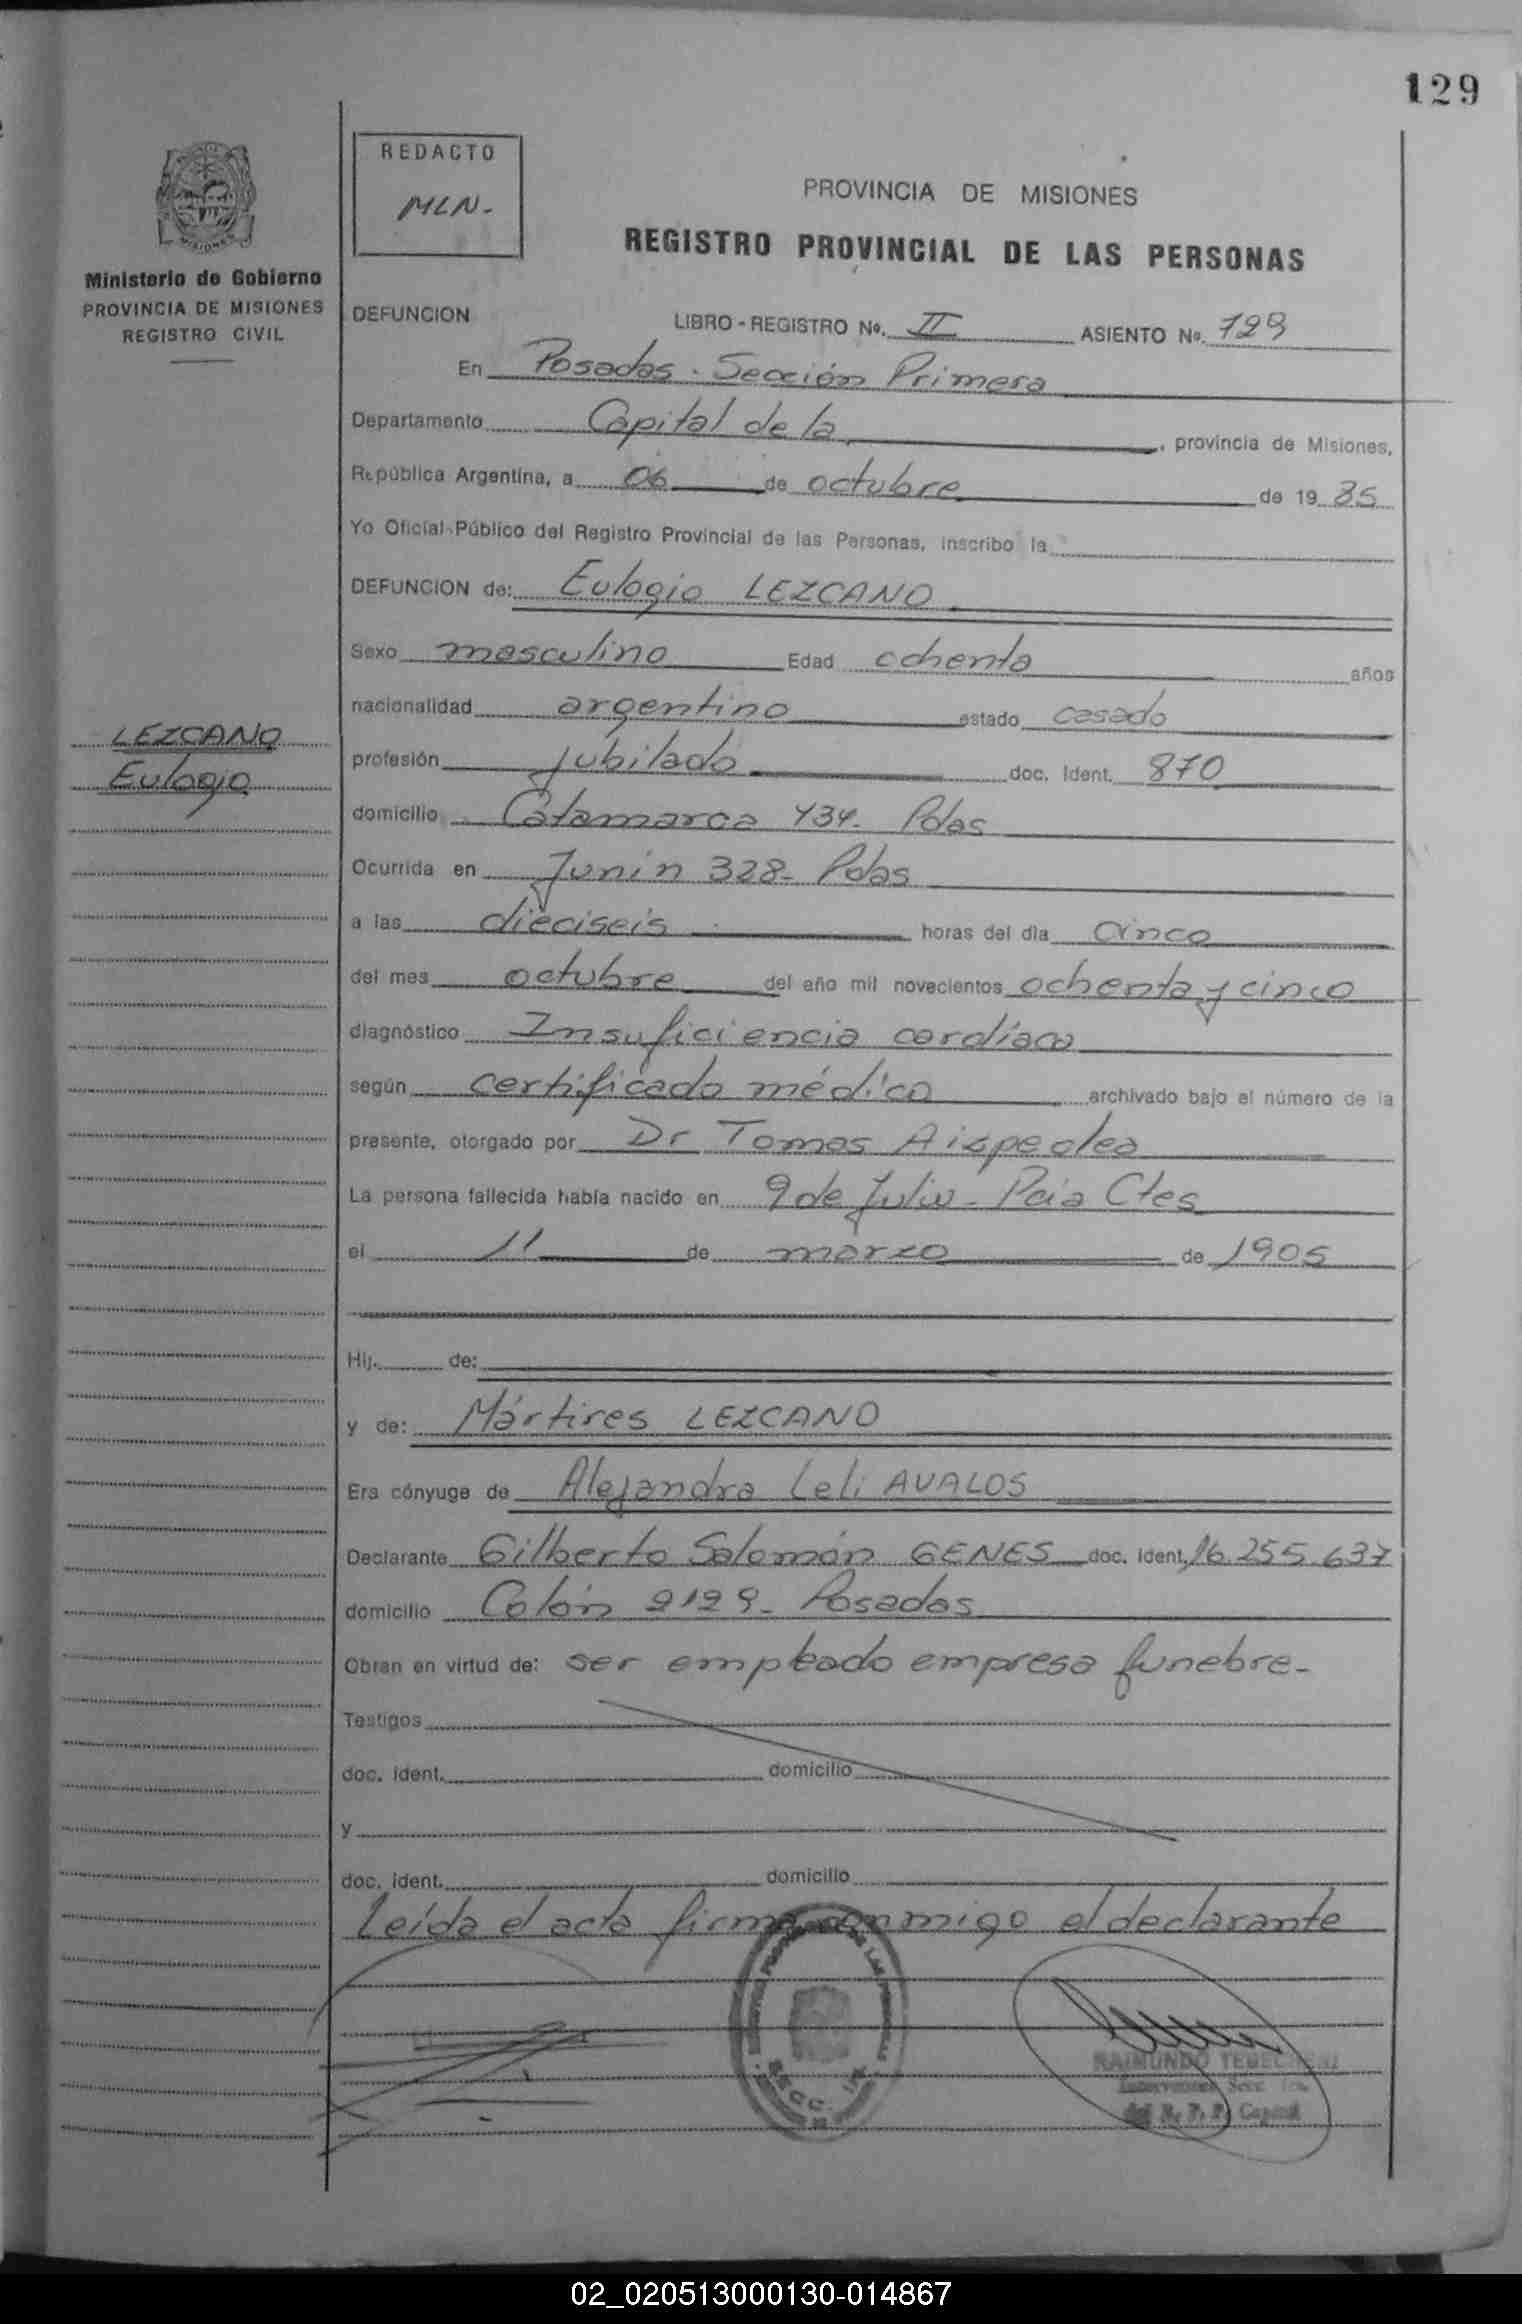 129
REDACTO
MLN.-
PROVINCIA DE MISIONES
REGISTRO PROVINCIAL DE LAS PERSONAS
MISIONES
Ministerio de Gobierno
PROVINCIA DE MISIONES
REGISTRO CIVIL
DEFUNCION LIBRO - REGISTRO No. II ASIENTO No. 129
En Posadas - Sección Primera
Departamento Capital de la , provincia de Misiones,
República Argentina, a 06 de octubre de 19 85
Yo Oficial Público del Registro Provincial de las Personas, inscribo la
DEFUNCION de: Eulogio LEZCANO
Sexo masculino Edad ochenta años
nacionalidad argentino estado casado
LEZCANO
Eulogio
profesión jubilado doc. Ident. 870
domicilio Catamarca 434. Pdas
Ocurrida en Junín 328- Pdas
a las dieciseis horas del día cinco
del mes octubre del año mil novecientos ochenta y cinco
diagnóstico Insuficiencia cardíaca
según certificado médico archivado bajo el número de la
presente, otorgado por Dr Tomas
La persona fallecida había nacido en 9 de Julio - Pcia Ctes
el 11 de marzo de 1905
Hij. de:
y de: Mártires LEZCANO
Era cónyuge de Alejandra Leli AVALOS
Declarante Gilberto Salomón GENES doc. ident. 16.255.637
domicilio Colón 2129- Posadas
Obran en virtud de: ser empleado empresa funebre-
Testigos
doc. ident. domicilio
y
doc. ident. domicilio
Leída el acta firma conmigo el declarante
DE LAS PERSONAS
SECC. 1a
RAIMUNDO
Capital
02_020513000130-014867